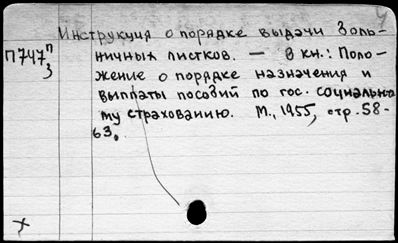 Инструкция о порядке выдачи боль-
П747 п/3 ничных листков. — В кн.: Поло-
жение о порядке назначения и
выплаты пособий по гос. социально-
му страхованию. М., 1955, стр. 58-
63.